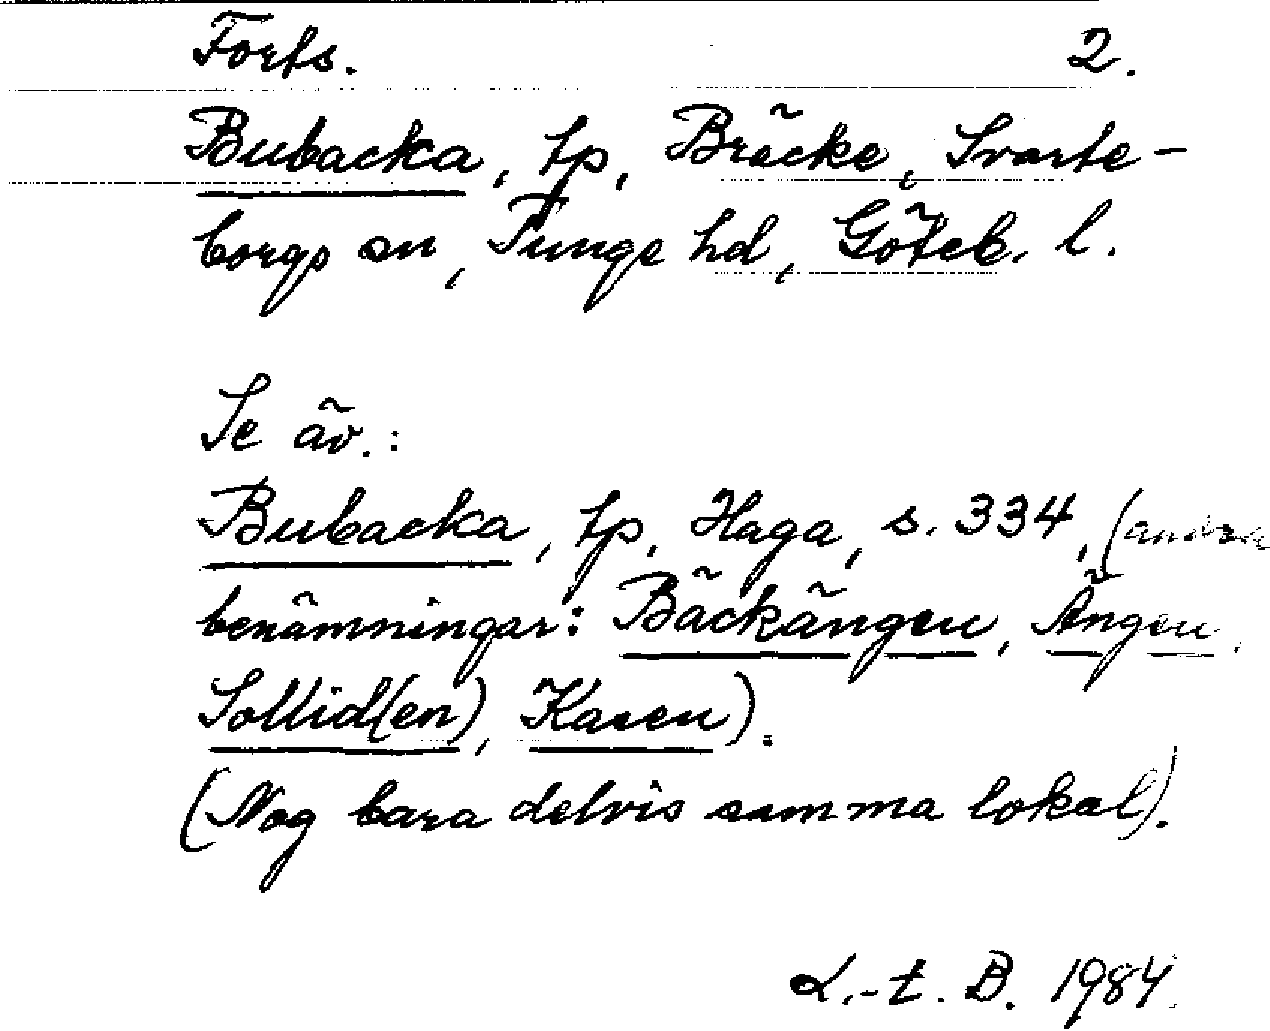 Forts. 2.
Bubacka, tp, Bräcke, Svarte-
borgs sn, Tunge hd, Göteb. l.
Se äv.:
Bubacka, tp, Haga, s. 334, (andra
benämningar: Bäckängen, Ängen,
Sollid(en), Kasen).
(Nog bara delvis samma lokal).
L.-t. B. 1984.